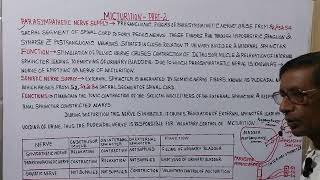 MICTURITION - PART-2
PARASYMPATHETIC NERVE SUPPLY - PREGANGLIONIC FIBERS OF PARASYMPATHETIC NERVE ARISE FROM S2, S3 & S4
SACRAL SEGMENT OF SPINAL CORD & FORM PELVIC NERVE. THESE FIBERS RUN THROUGH HYPOGASTRIC GANGLION &
SYNAPSE POSTGANGLIONIC NEURONS SITUATED IN CLOSE RELATION TO URINARY BLADDER & INTERNAL SPHINCTER.
FUNCTION - STIMULATION OF PELVIC NERVE CAUSES CONTRACTION OF DETRUSOR MUSCLE & RELAXATION OF INTERNAL
SPHINCTER LEADING TO EMPTYING OF URINARY BLADDER. DUE TO WHICH PARASYMPATHETIC NERVE IS KNOWN AS
NERVE OF EMPTYING OR NERVE OF MICTURITION.
SOMATIC NERVE SUPPLY - EXTERNAL SPHINCTER IS INNERVATED BY SOMATIC NERVE FIBERS KNOWN AS PUDENDAL NERVE
WHICH ARISES FROM S2, S3 & S4 SACRAL SEGMENTS OF THE SPINAL CORD.
FUNCTIONS - MAINTAINS THE TONIC CONTRACTION OF THE SKELETAL MUSCLE FIBERS OF THE EXTERNAL SPHINCTER &
KEEPS THE EXTERNAL SPHINCTER CONSTRICTED ALWAYS
DURING MICTURITION THIS NERVE IS INHIBITED. IT CAUSES RELAXATION OF EXTERNAL SPHINCTER LEADING TO
VOIDING OF URINE. THUS THE PUDENDAL NERVE IS RESPONSIBLE FOR VOLUNTARY CONTROL OF MICTURITION.
NERVE ON DETRUSOR MUSCLE ON INTERNAL SPHINCTER ON EXTERNAL SPHINCTER FUNCTION
SYMPATHETIC NERVE RELAXATION CONTRACTION NOT SUPPLIED FILLING OF URINARY BLADDER
PARASYMPATHETIC NERVE CONTRACTION RELAXATION NOT SUPPLIED EMPTYING OF URINARY BLADDER
SOMATIC NERVE NOT SUPPLIED NOT SUPPLIED CONTRACTION VOLUNTARY CONTROL OF MICTURITION